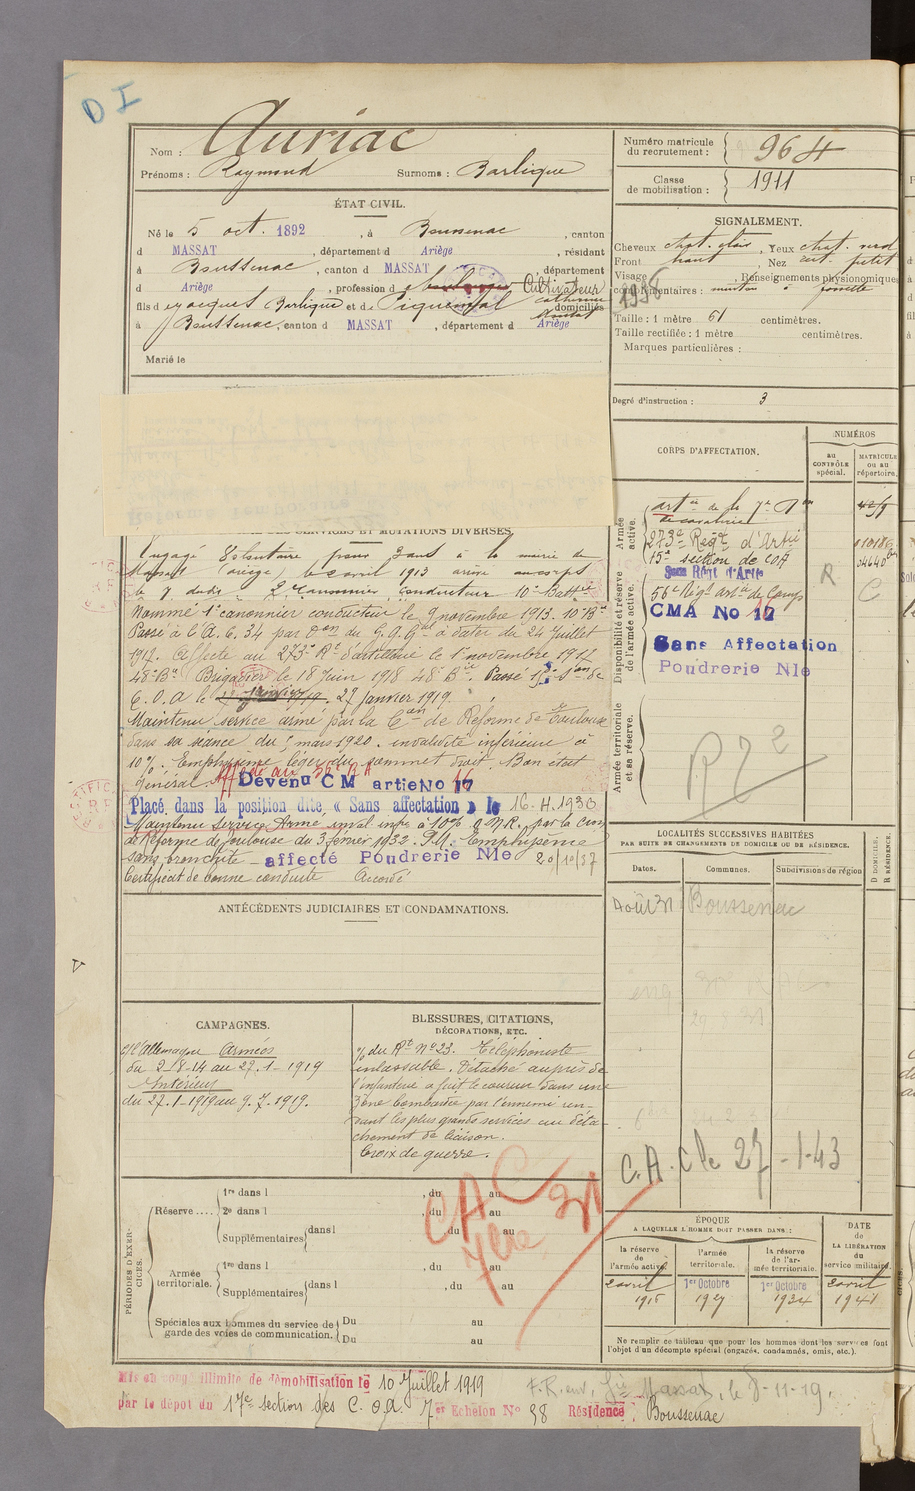 D I
Nom : Auriac
Prénoms : Raymond Surnoms : Barlique
Numéro matricule
du recrutement : 964
Classe
de mobilisation : 1911
ÉTAT CIVIL.
Né le 5 oct. 1892, à Boussenac, canton
d MASSAT, département d Ariège, résidant
à Boussenac, canton d MASSAT, département
d Ariège, profession d Cultivateur
fils de Jacques Barlique et de Piquemal Catherine domiciliés
à Boussenac, canton d MASSAT, département d Ariège
Marié le
SIGNALEMENT.
Cheveux chat. clair, Yeux chat. verd
Front haut, Nez petit
Visage, Renseignements physionomiques
complémentaires : menton à fossette
1936
Taille : 1 mètre 61 centimètres.
Taille rectifiée : 1 mètre centimètres.
Marques particulières :
Degré d'instruction : 3
CORPS D'AFFECTATION.
NUMÉROS
au
CONTRÔLE
spécial.
MATRICULE
ou au
répertoire.
Armée
active.
artie de la 7e Don
de cavalerie
273e Régt d'Artie
15e section de COA
Disponibilité et réserve
de l'armée active.
56e Régt artie de Camp
R
C
CMA No 16
Sans Affectation
Poudrerie Nle
Armée territoriale
et sa réserve.
R72
DÉTAIL DES SERVICES ET MUTATIONS DIVERSES
Engagé Volontaire pour 3 ans à la mairie de
Massat (Ariège) le 2 avril 1913 arrivé au corps
le 7 dudit 2e Canonnier conducteur 10e Battie
Nommé 1er canonnier conducteur le 9 novembre 1913. 10e Bie
Passé à l'A. C. 34 par Don du G. Q. Gal à dater du 24 Juillet
1917. Affecté au 273e Rt d'artillerie le 1er novembre 1917
48e Bie Brigadier le 18 Juin 1918 48e Bie. Passé 15e Son de
C. O. A le 27 janvier 1919.
Maintenu service armé par la Con de Réforme de Toulouse
dans sa séance du mars 1920. invalidité inférieure à
10%. Emphysème léger du sommet droit. Bon état
général. Affecté au 56e RA Devenu CM artie No 16
Placé dans la position dite « Sans affectation » le 16.4.1930
Maintenu Service Armé inval. infre à 10% O N R. par la Con
de Réforme de Toulouse du 3 février 1932. P.M. Emphysème
sans bronchite - affecté Poudrerie Nle 20/10/37
Certificat de bonne conduite Accordé
LOCALITÉS SUCCESSIVES HABITÉES
PAR SUITE DE CHANGEMENTS DE DOMICILE OU DE RÉSIDENCE.
Dates. Communes. Subdivisions de région
D DOMICILE.
R RÉSIDENCE.
Août 31 Boussenac
C.A.C le 27-1-43
ANTÉCÉDENTS JUDICIAIRES ET CONDAMNATIONS.
CAMPAGNES.
c/ l'Allemagne Armées
du 2-8-14 au 27-1-1919
Intérieur
du 27-1-1919 au 9.7.1919.
BLESSURES, CITATIONS,
DÉCORATIONS, ETC.
% du Rt No 23. Téléphoniste
inlassable. Détaché auprès de
l'infanterie a fait le coureur dans une
zone bombardée par l'ennemi ren-
dant les plus grands services au déta-
chement de liaison.
Croix de guerre.
CAC
PÉRIODES D'EXER-
CICES.
Réserve .... 1re dans l, du au
2e dans l, du au
Supplémentaires dans l, du au
Armée
territoriale. 1re dans l, du au
Supplémentaires dans l, du au
Spéciales aux hommes du service de
garde des voies de communication. Du au
Du au
ÉPOQUE
A LAQUELLE L'HOMME DOIT PASSER DANS :
la réserve
de l'armée active.
l'armée
territoriale.
la réserve
de l'ar-
mée territoriale.
DATE
de
LA LIBÉRATION
du
service militaire.
2 avril 1916
1er Octobre 1927
1er Octobre 1934
2 avril 1941
Ne remplir ce tableau que pour les hommes dont les services font
l'objet d'un décompte spécial (engagés, condamnés, omis, etc.).
Mis en congé illimité de démobilisation le 10 Juillet 1919
par le dépôt du 17e section des C. O A. 7er Echelon No 98 Résidence : Boussenac